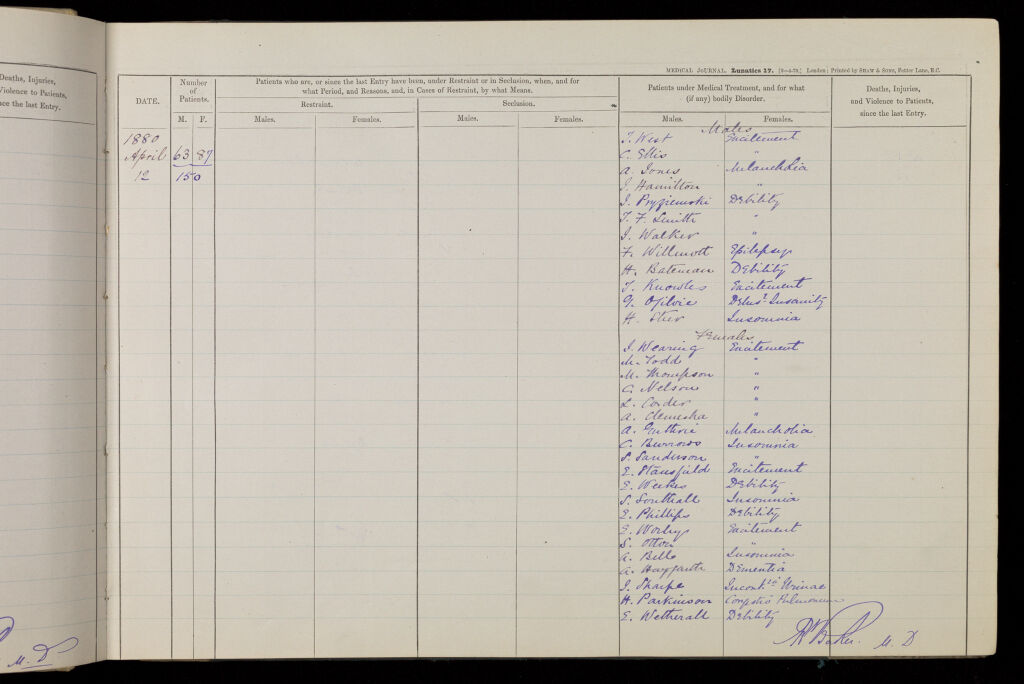 Deaths, Injuries,
Violence to Patients,
since the last Entry.
M. D
MEDICAL JOURNAL. Lunatics 17. [9—4-79.] London: Printed by SHAW & SONS, Fetter Lane, E.C.
DATE.
Number of Patients.
M. F.
Patients who are, or since the last Entry have been, under Restraint or in Seclusion, when, and for
what Period, and Reasons, and, in Cases of Restraint, by what Means.
Restraint.
Seclusion.
Males. Females. Males. Females.
Patients under Medical Treatment, and for what
(if any) bodily Disorder.
Males. Females.
Deaths, Injuries,
and Violence to Patients,
since the last Entry.
1880
April 63 87
12 150
Males
T. West Excitement
C. Ellis "
A. Jones Melancholia
J. Hamilton "
J. Pryziemski Debility
T. F. Smith "
J. Walker "
F. Willmott Epilepsy
H. Bateman Debility
T. Knowles Excitement
G. Ogilvie Delust Insanity
H. Insomnia
Females
J. Wearing Excitement
M. Todd "
M. Thompson "
C. Nelson "
L. Corder "
A. Clemesha "
A. Guthrie Melancholia
C. Burrows Insomnia
S. Sanderson "
E. Stansfield Excitement
E. Weekes Debility
S. Southall Insomnia
E. Phillips Debility
E. Worley Excitement
S. Otton "
A. Bell Insomnia
A. Haygarth Dementia
J. Sharpe Incontia Urinae
H. Parkinson Congestio Pulmonum
E. Wetherall Debility
R Baker. M. D